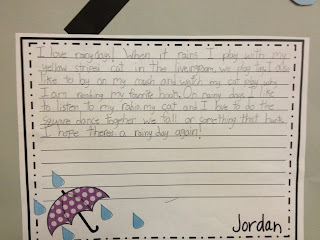 I love rainy days! When it rains I play with my
yellow striped cat in the livingroom. we play tag. I also
like to lay on my couch and watch my cat play while
I am reading my favorite book. On rainy days I like
to listen to my radio my cat and I love to do the
square dance together we fall or something that hurts.
I hope theres a rainy day again!
Jordan